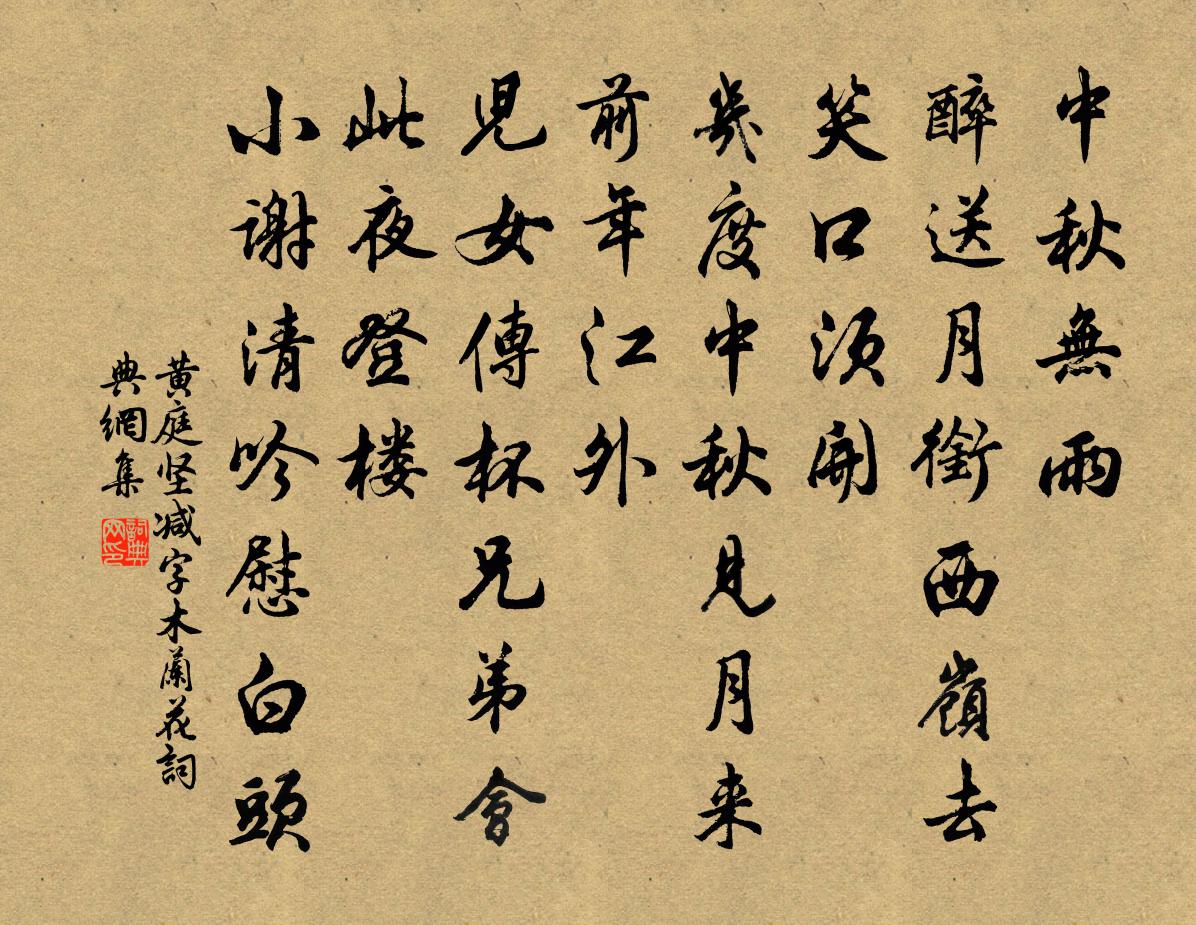 中秋無雨
醉送月銜西嶺去
笑口須開
幾度中秋見月来
前年江外
児女傳杯兄弟會
此夜登楼
小謝清吟慰白頭
黄庭坚减字木蘭花詞
典網集
詞典网印